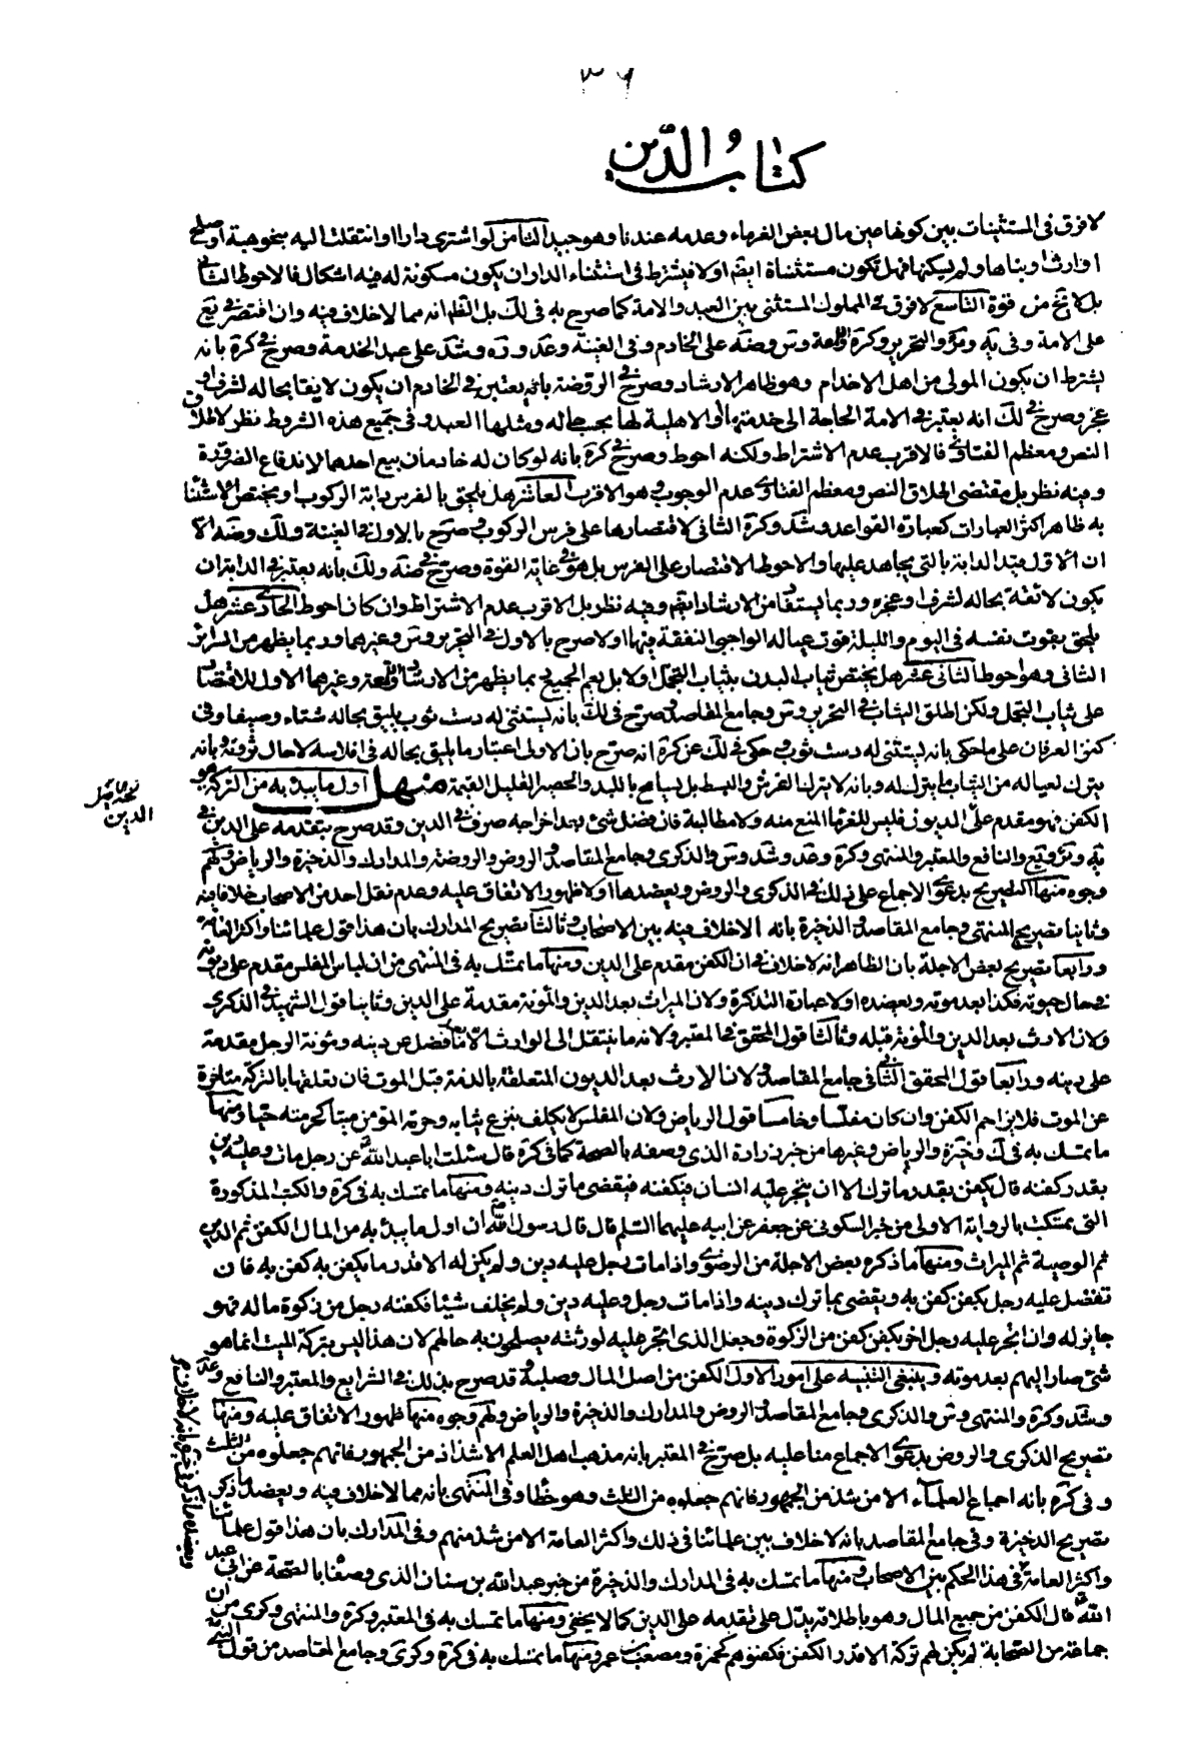 ٣٦
كتاب الدّين
لا فرق فى المستثنيات بين كونها عين مال بعض الغرماء وعدمه عندنا وهو جيد الثامن لو اشترى دارا او انتقلت اليه بنحو هبة او صلح
او ارث او بناها ولم يسكنها فهل تكون مستثناة ايضا او لا فيشترط فى استثناء الدار ان يكون مسكونة له فيه اشكال فالاحوط الثانى
بل لا يخ من قوة التاسع لا فرق فى المملوك المستثنى بين العبد والامة كما صرح به فى لك بل الظ انه مما لا خلاف فيه وان اقتصر فى يع
على الامة وفى ية و والتحرير وكرة واللمعة وس وضه على الخادم وفى الغنية وعد و وشد على عبد الخدمة وصرح فى كرة بانه
يشترط ان يكون المولى من اهل الاخدام وهو ظاهر الارشاد وصرح فى الروضة بانه يعتبر فى الخادم ان يكون لايقا بحاله لشرف او
عجز وصرح فى لك انه يعتبر فى الامة الحاجة الى خدمتها او الاهلية لها بحسب حاله ومثلها العبد وفى جميع هذه الشروط نظر لاطلاق
النص ومعظم الفتاوى فالاقرب عدم الاشتراط ولكنه احوط وصرح فى كرة بانه لو كان له خادمان بيع احدهما لاندفاع الضرورة
وفيه نظر بل مقتضى اطلاق النص ومعظم الفتاوى عدم الوجوب وهو الاقرب العاشر هل يلحق بالفرس دابة الركوب او يختص الاستثنا
به ظاهر اكثر العبارات كعبارة القواعد وشد وكرة الثانى لاقتصارها على فرس الركوب وصرح بالاول فى الغنية ولك وضه الا
ان الاول قيد الدابة بالتى يجاهد عليها والاحوط الاقتصار على الفرس بل هو فى غاية القوة وصرح فى ضه ولك بانه يعتبر فى الدابة ان
يكون لائقة بحاله لشرف او عجزه وربما يستفاد من الارشاد ايضا وفيه نظر بل الاقرب عدم الاشتراط وان كان احوط الحادى عشر هل
يلحق بقوت نفسه فى اليوم والليلة قوت عياله الواجبى النفقة فيها او لا صرح بالاول فى التحرير وس وغيرهما وربما يظهر من السرائر
الثانى وهو احوط الثانى عشر هل يختص ثياب البدن بثياب التجمل او لا بل يعم الجميع ربما يظهر من الارشاد واللمعة وغيرهما الاول للاقتصار
على ثياب التجمل ولكن اطلق الثياب فى التحرير وس وجامع المقاصد وصرح فى لك بانه يستثنى له دست ثوب يليق بحاله شتاء وصيفا وفى
كنز العرفان على ما حكى بانه يستثنى له دست ثوب وحكى فى لك عن كرة انه صرح بان الاولى اعتبار ما يليق بحاله فى افلاسه لا حال ثروته وبانه
يترك لعياله من الثياب ما يترك له وبانه لا يترك الفرش والبسط بل يسامح باللبد والحصير القليل القيمة منهل اول ما يبدء به من التركة هو
الكفن فهو مقدم على الديون فليس للغرماء المنع منه ولا مطالبة فان فضل شئ بعد اخراجه صرف فى الدين وقد صرح بتقدمه على الدين فى
ية و ويع والنافع والمعتبر والمنتهى وكرة وعد وشد وس والذكرى وجامع المقاصد والروض والروضة والمدارك والذخيرة والرياض ولهم
وجوه منها التصريح بدعوى الاجماع على ذلك فى الذكرى والروض ويعضدها اولا ظهور الاتفاق عليه وعدم نقل احد من الاصحاب خلافا فيه
وثانيا تصريح المنتهى وجامع المقاصد والذخيرة بانه لا خلاف فيه بين الاصحاب وثالثا تصريح المدارك بان هذا قول علمائنا واكثر العامة
ورابعا تصريح بعض الاجلة بان الظاهر انه لا خلاف فى ان الكفن مقدم على الدين ومنها ما تمسك به فى المنتهى من ان لباس المفلس مقدم على ديونه
فى حال حيوته فكذا بعد موته ويعضده اولا عبارة التذكرة ولان الميراث بعد الدين والمؤنة مقدمة على الدين وثانيا قول الشهيد فى الذكرى
ولان الارث بعد الدين والمؤنة قبله وثالثا قول المحقق فى المعتبر ولانه ما ينتقل الى الوارث الا ما فضل عن دينه ومؤنة الرجل مقدمة
على دينه ورابعا قول المحقق الثانى فى جامع المقاصد لان الارث بعد الديون المتعلقة بالذمة قبل الموت فان تعلقها بالتركة متاخرة
عن الموت فلا يزاحم الكفن وان كان مفلسا وخامسا قول الرياض ولان المفلس لا يكلف بنزع ثيابه وحرمة المؤمن ميتا كحرمته حيا ومنها
ما تمسك به فى لك وخيرة والرياض وغيرها من خبر زرارة الذى وصفه بالصحة كما فى كرة قال سئلت ابا عبد الله عن رجل مات وعليه دين
بقدر كفنه قال يكفن بقدر ما ترك الا ان يتجر عليه انسان فيكفنه فيقضى ما ترك دينه ومنها ما تمسك به فى كرة والكتب المذكورة
التى تمسكت بالرواية الاولى من خبر السكونى عن جعفر عن ابيه عليهما السلم قال قال رسول الله ان اول ما يبدء به من المال الكفن ثم الدين
ثم الوصية ثم الميراث ومنها ما ذكره بعض الاجلة من الرضوى واذا مات رجل عليه دين ولم يكن له الا قدر ما يكفن به كفن به فان
تفضل عليه رجل بكفن كفن به ويقضى بما ترك دينه واذا مات رجل وعليه دين ولم يخلف شيئا فكفنه رجل من زكوة ماله فهو
جايز له وان اتجر عليه رجل اخر بكفن كفن من الزكوة وجعل الذى اتجر عليه لورثته يصلحون به حالهم لان هذا ليس بتركة الميت انما هو
شئ صار اليهم بعد موته وينبغى التنبيه على امور الاول الكفن من اصل المال وصلبه وقد صرح بذلك فى الشرايع والمعتبر والنافع وعد
وشد وكرة والمنتهى وس والذكرى وجامع المقاصد والروض والمدارك والذخيرة والرياض ولهم وجوه منها ظهور الاتفاق عليه ومنها
تصريح الذكرى والروض بدعوى الاجماع منا عليه بل صرح فى المعتبر بانه مذهب اهل العلم الا شذاذ من الجمهور فانهم جعلوه من الثلث
وفى كرة بانه اجماع العلماء الا من شذ من الجمهور فانهم جعلوه من الثلث وهو خطأ وفى المنتهى بانه مما لا خلاف فيه ويعضد ما ذكر
تصريح الذخيرة وفى جامع المقاصد بانه لا خلاف بين علمائنا فى ذلك واكثر العامة الا من شذ منهم وفى المدارك بان هذا قول علمائنا
واكثر العامة فى هذا الحكم بين الاصحاب ومنها ما تمسك به فى المدارك والذخيرة من خبر عبد الله بن سنان الذى وصفا بالصحة عن ابى عبد
الله قال الكفن من جميع المال وهو باطلاقه يدل على تقدمه على الدين كما لا يخفى ومنها ما تمسك به فى المعتبر وكرة والمنتهى وكرى من ان
جماعة من الصحابة لم يكن لهم تركة الا قدر الكفن فكفنوهم كحمزة ومصعب بن عمير ومنها ما تمسك به فى كرة وكرى وجامع المقاصد من قول النبى
الدين